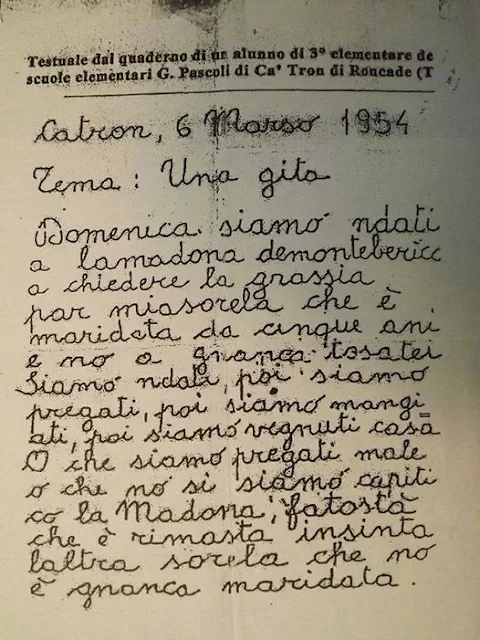 Testuale dal quaderno di un alunno di 3° elementare de
scuole elementari G. Pascoli di Ca' Tron di Roncade (T
Catron, 6 Marso 1954
Tema: Una gita
Domenica siamo ndati
a lamadona demontebericc
a chiedere la grassia
par miasorela che è
maridata da cinque ani
e no a gnanca tosatei
Siamo ndati, poi siamo
pregati, poi siamo mangi
ati, poi siamo vegnuti casa
O che siamo pregati male
o che no si siamo capiti
co la Madona, fatostà
che è rimasta insinta
laltra sorela che no
è gnanca maridata.